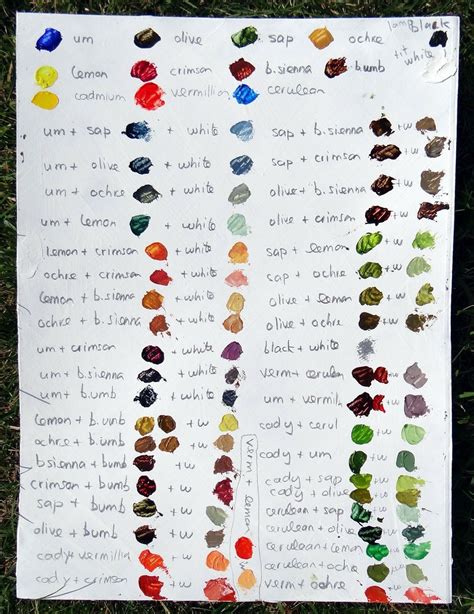 um olive sap ochre lamp black
lemon crimson b.sienna b.umb tit white
cadmium vermillion cerulean
um + sap + white
um + olive + white
um + ochre + white
um + lemon + white
lemon + crimson + white
ochre + crimson + white
lemon + b.sienna + white
ochre + b.sienna + white
um + crimson + white
um + b.sienna + white
um + b.umb + white
lemon + b.umb + w
ochre + b.umb + w
b.sienna + bumb + w
crimson + bumb + w
sap + bumb + w
olive + bumb + w
cady + vermillion + w
cady + crimson + w
verm lemon
sap + b.sienna + w
sap + crimson + w
olive + b.sienna + w
olive + crimson + w
sap + lemon + w
cap + ochre + w
olive + lemon + w
olive + ochre + w
black + white
verm + cerulean + w
um + vermillion + w
cady + cerul + w
cady + um + w
cady + sap + w
cady + olive + w
cerulean + sap + w
cerulean + olive + w
cerulean + lemon + w
cerulean + ochre + w
verm + ochre + w